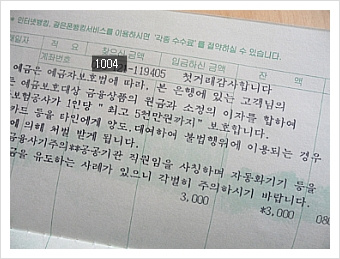 ※ 인터넷뱅킹, 폰뱅킹서비스를 이용하시면 "각종 수수료"를 절약하실 수 있습니다.
적 요 찾으신 금액 입금하신 금액 잔 액
계좌번호 1004 -119405 첫거래감사합니다
예금은 예금자보호법에 따라, 본 은행에 있는 고객님의
예금보호대상 금융상품의 원금과 소정의 이자를 합하여
보험공사가 1인당 "최고 5천만원까지" 보호합니다.
카드 등을 타인에게 양도, 대여하여 불법행위에 이용되는 경우
에 의해 처벌 받게 됩니다.
금융사기주의**공공기관 직원임을 사칭하며 자동화기기 등을
금을 유도하는 사례가 있으니 각별히 주의하시기 바랍니다.
3,000 *3,000 080